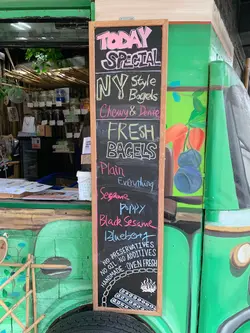 TODAY
SPECIAL
NY Style
Bagels
Chewy & Dense
FRESH
BAGELS
Plain
Everything
Sesame
Poppy
Black Sesame
Blueberry
NO PRESERVATIVES
NO OIL, NO ADDITIVES
HANDMADE OVEN FRESH